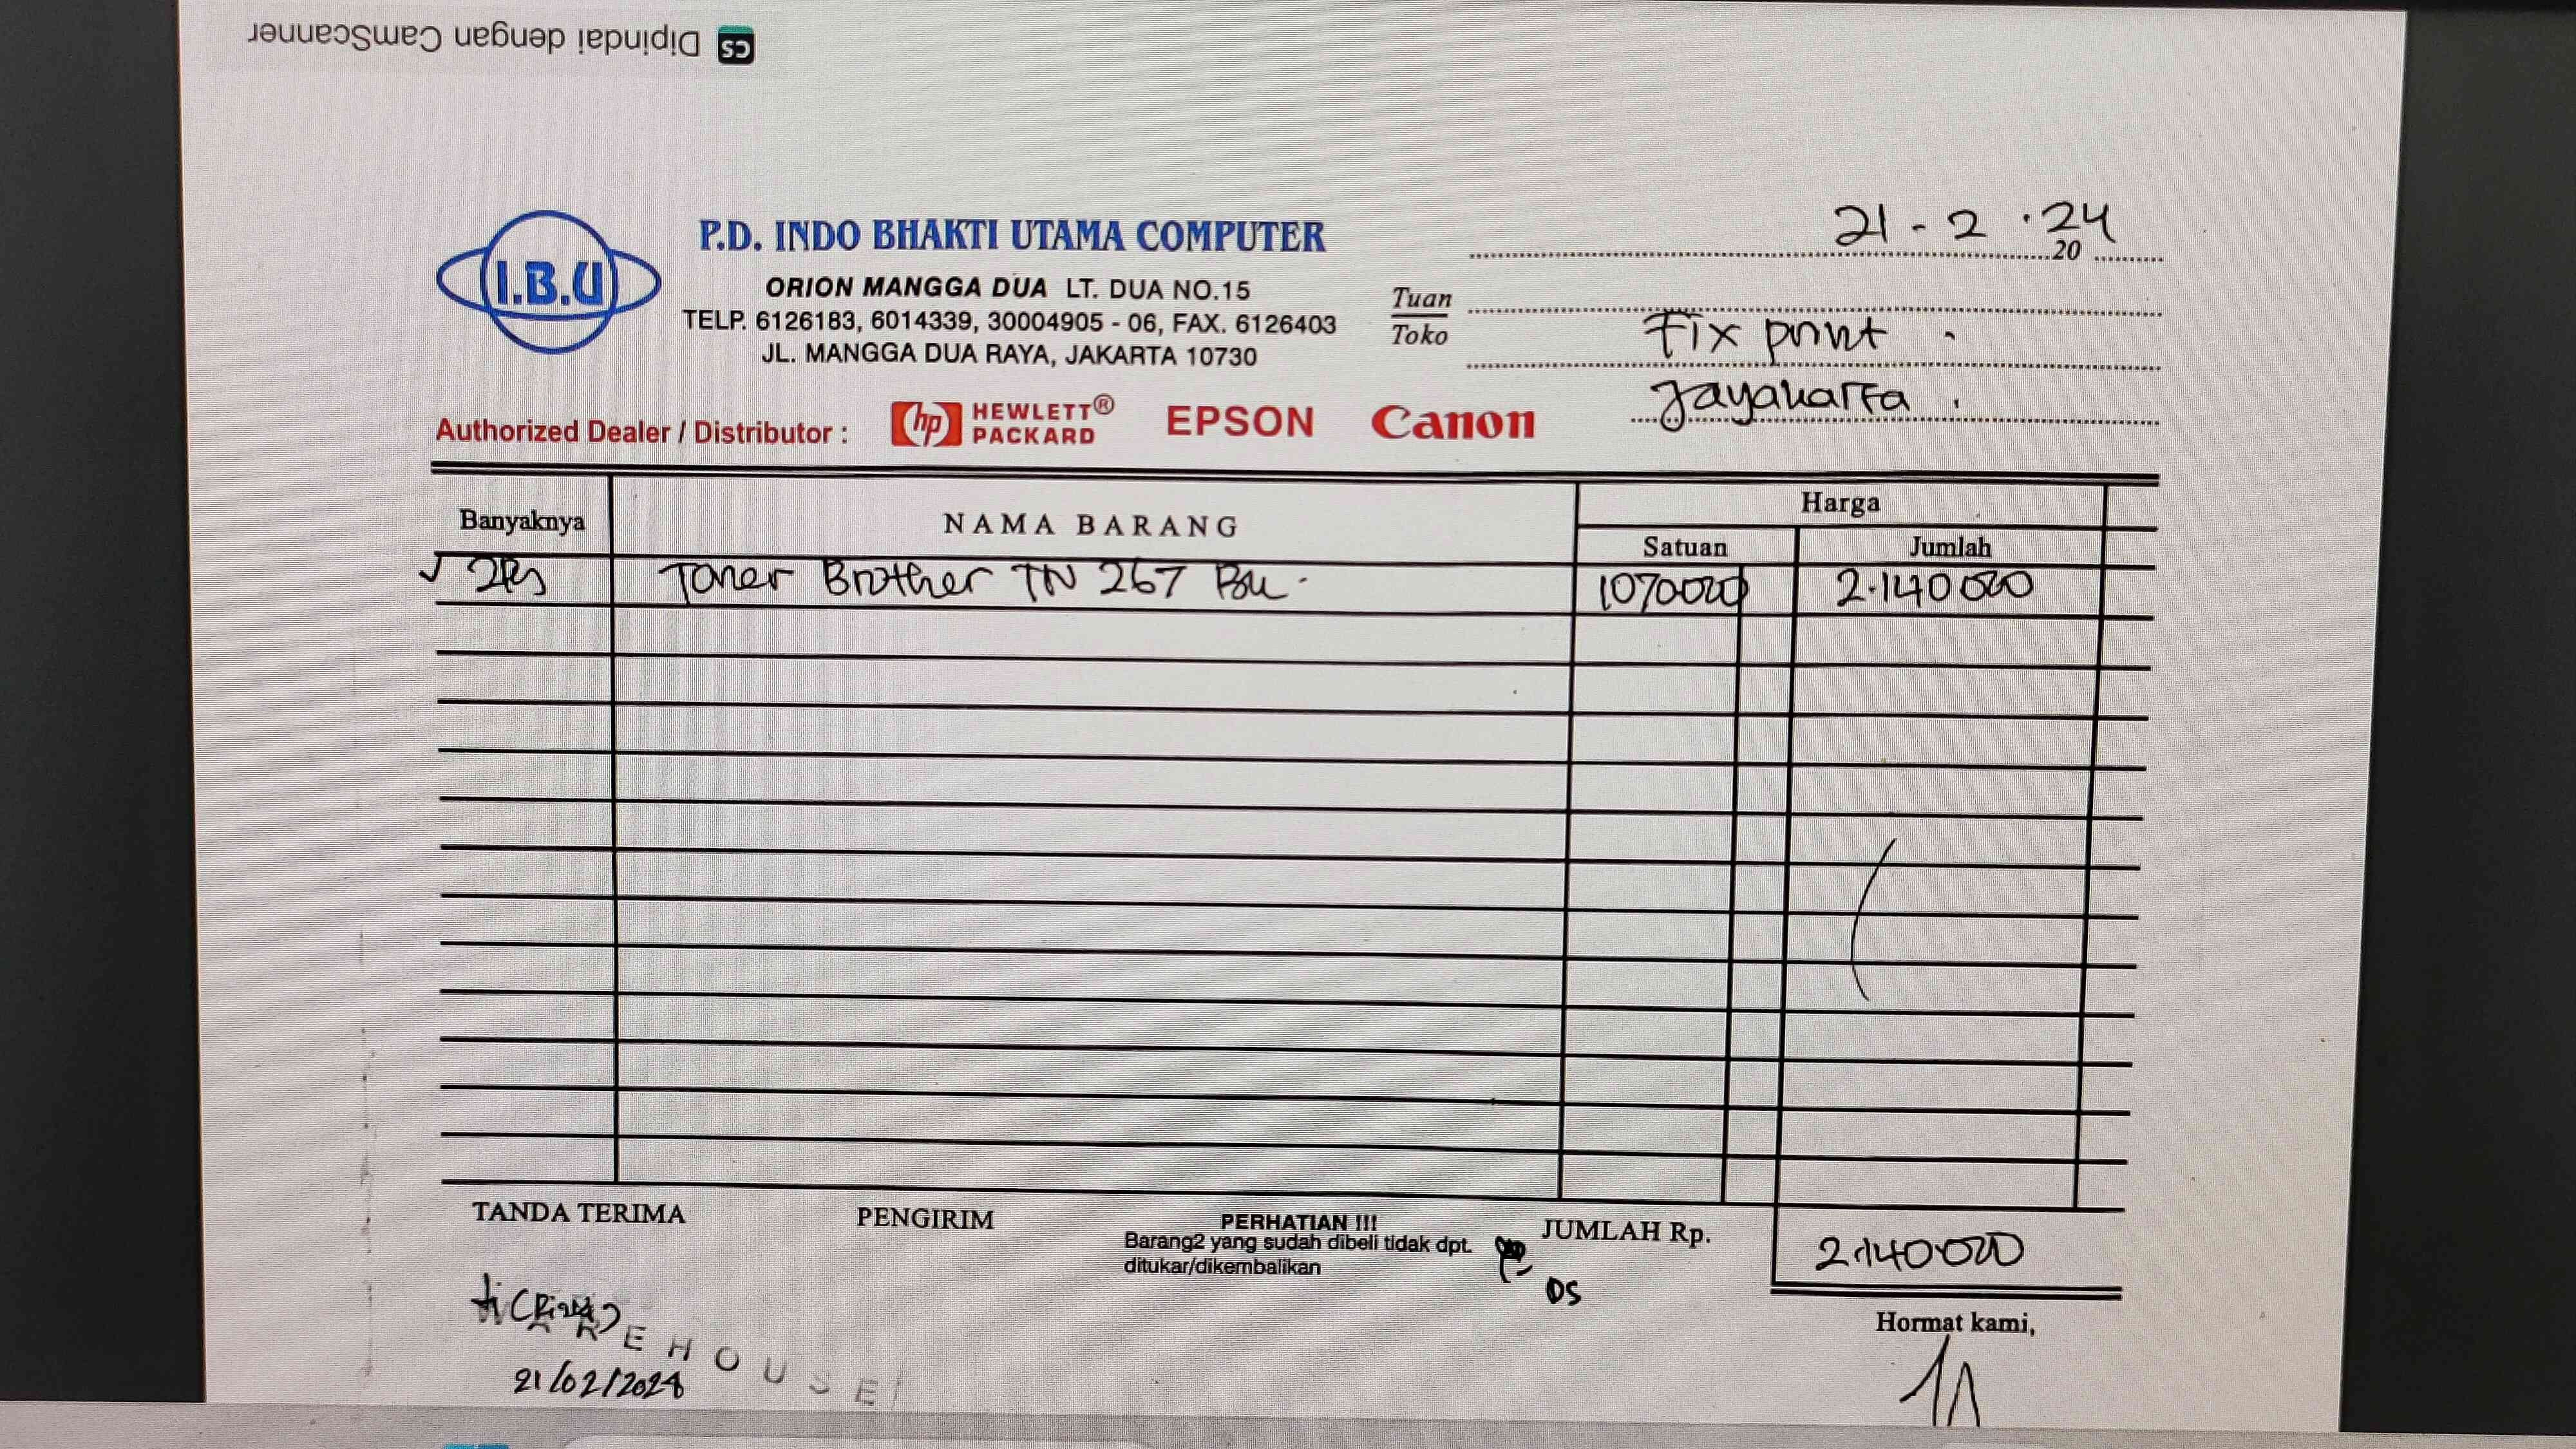 Dipindai dengan CamScanner
CS
I.B.U
P.D. INDO BHAKTI UTAMA COMPUTER
ORION MANGGA DUA LT. DUA NO.15
TELP. 6126183, 6014339, 30004905 - 06, FAX. 6126403
JL. MANGGA DUA RAYA, JAKARTA 10730
21 - 2 · 24
20
Tuan
Toko
Fix print .
Jayakarta .
Authorized Dealer / Distributor :
hp HEWLETT® PACKARD EPSON Canon
Banyaknya NAMA BARANG Harga
Satuan Jumlah
Toner Brother TN 267 1070000 2.140000
TANDA TERIMA PENGIRIM PERHATIAN !!! JUMLAH Rp. 2.140000
Barang2 yang sudah dibeli tidak dpt.
ditukar/dikembalikan
DS
Hormat kami,
WAREHOUSE
21/02/2024